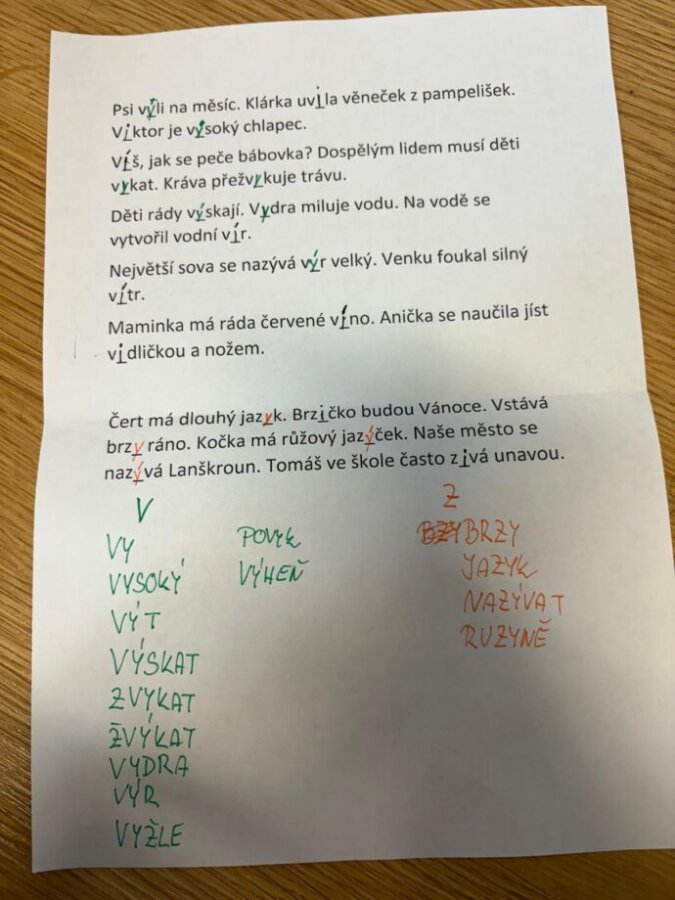 Psi vyli na měsíc. Klárka uvila věneček z pampelišek.
Viktor je vysoký chlapec.
Víš, jak se peče bábovka? Dospělým lidem musí děti
vykat. Kráva přežvykuje trávu.
Děti rády výskají. Vydra miluje vodu. Na vodě se
vytvořil vodní vír.
Největší sova se nazývá výr velký. Venku foukal silný
vítr.
Maminka má ráda červené víno. Anička se naučila jíst
vidličkou a nožem.
Čert má dlouhý jazyk. Brzičko budou Vánoce. Vstává
brzy ráno. Kočka má růžový jazýček. Naše město se
nazývá Lanškroun. Tomáš ve škole často zívá unavou.
V
Z
VY
POVYK
BRZY
VYSOKÝ
VÝHEŇ
JAZYK
VÝT
NAZÝVAT
VÝSKAT
RUZYNĚ
ZVYKAT
ŽVÝKAT
VYDRA
VÝR
VYŽLE